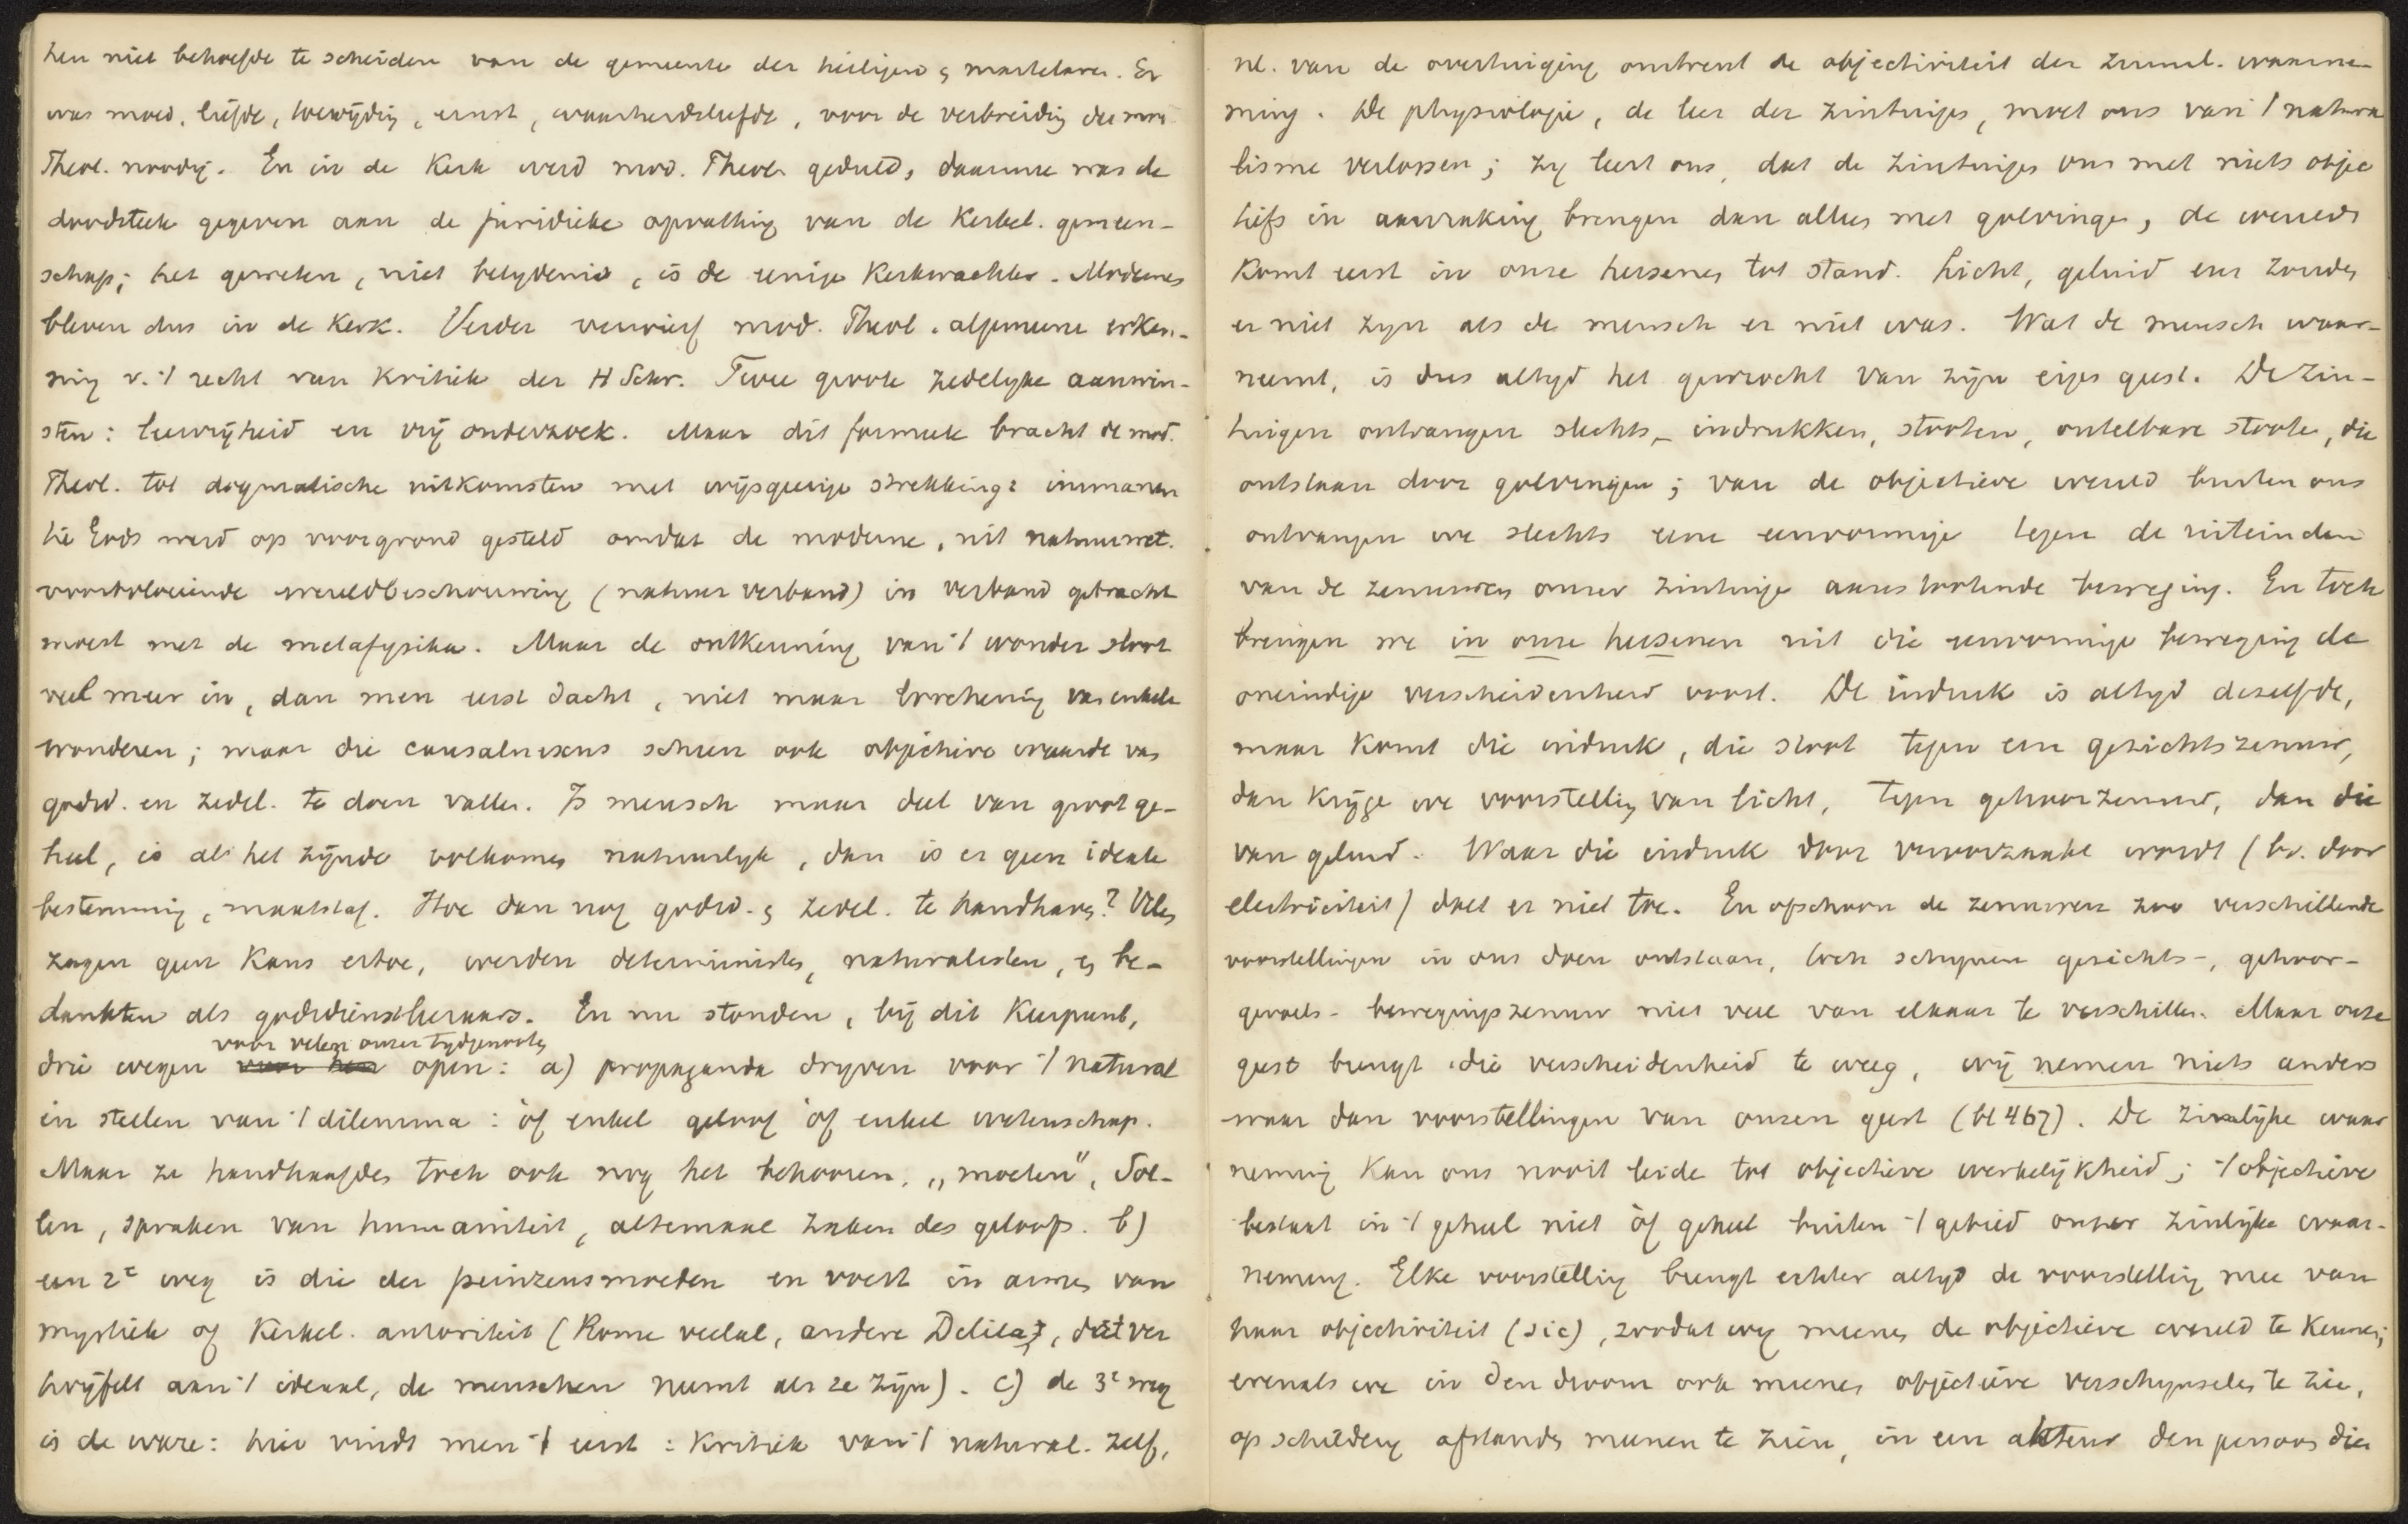 hen niet behoefde te scheiden van de gemeente der heiligen & martelaren. Er
was moed, liefde, toewijding, ernst, waarheidsliefde, voor de verbreiding der mod.
Theol. noodig. En in de Kerk werd mod. Theol. geduld, daarmee was de
doodsteek gegeven aan de juridieke opvatting van de Kerkel. gemeen-
schap; het geweten, niet belydenis, is de eenige Kerkwachter. Modernes
bleven dus in de Kerk. Verder verwierf mod. Theol. algemeene erken-
ning v. 't recht van Kritiek der H Schr. Twee groote zedelyke aanwin-
sten: leervrijheid en vrij onderzoek. Maar dit formeele bracht de mod.
Theol. tot dogmatische uitkomsten met wijsgeerige strekking: immanen
tie Gods werd op voorgrond gesteld omdat de moderne, uit natuurwet.
voortvloeiende wereldbeschouwing (natuurverband) in verband gebracht
moest met de metafysika. Maar de ontkenning van 't wonder sloot
veel meer in, dan men eerst dacht, niet maar loochening van enkele
wonderen; maar die causalnexus scheen ook objectieve waarde van
godsd. en zedel. te doen vallen. Is mensch maar deel van groot ge-
heel, is al het zijnde volkomen natuurlyk, dan is er geen ideale
bestemming, maatstaf. Hoe dan nog godsd. & zedel. te handhaven? Velen
zagen geen Kans ertoe, werden deterministen, naturalisten, & be-
dankten als godsdienstleeraars. En nu stonden, bij dit Keerpunt,
voor velen onzer tydgenooten
drie wegen voor hen open: a) propaganda dryven voor 't natural
in stellen van 't dilemma: òf enkel geloof òf enkel wetenschap.
Maar ze handhaafden toch ook nog het behooren, „moeten", Sol-
len, spraken van humaniteit, altemaal zaken des geloofs. b)
een 2e weg is die der peinzensmoeden en voert in armen van
mystiek of Kerkel. autoriteit (Rome veelal, andere Delila, dat ver
twijfelt aan 't ideaal, de menschen neemt als ze zijn). c) de 3e weg
is de ware: hier vindt men 't eerst: Kritiek van 't natural. zelf,
nl. van de overtuiging omtrent de objectiviteit der zinnel. waarne-
ming. De physiologie, de leer der zintuigen, moet ons van 't natura
lisme verlossen; zy leert ons, dat de zintuigen ons met niets objec
tiefs in aanraking brengen dan alles met golvingen, de wereld
Komt eerst in onze hersenen tot stand. Licht, geluid enz zouden
er niet zyn als de mensch er niet was. Wat de mensch waar-
neemt, is dus altyd het gewrocht van zijn eigen geest. De zin-
tuigen ontvangen slechts indrukken, stooten, ontelbare stooten, die
ontstaan door golvingen; van de objectieve wereld buiten ons
ontvangen we slechts eene eenvormige tegen de uiteinden
van de zenuwen onzer zintuigen aanstootende beweging. En toch
brengen we in onze hersenen uit die eenvormige beweging de
oneindige verscheidenheid voort. De indruk is altyd dezelfde,
maar Komt die indruk, die stoot tegen een gezichtszenuw,
dan Krijgen we voorstelling van licht, tegen gehoorzenuw, dan die
van geluid. Waar die indruk door veroorzaakt wordt (bv. door
electriciteit) doet er niet toe. En ofschoon de zenuwen zoo verschillende
voorstellingen in ons doen ontstaan, toch schynen gezichts-, gehoor-
gevoels- bewegingszenuw niet veel van elkaar te verschillen. Maar onze
geest brengt die verscheidenheid te weeg, wij nemen niets anders
waar dan voorstellingen van onzen geest (bl 467). De zinlijke waar
neming Kan ons nooit leiden tot objectieve werkelijkheid; 't objectieve
bestaat in 't geheel niet òf geheel buiten 't gebied onzer zinlijke waar-
neming. Elke voorstelling brengt echter altyd de voorstelling mee van
haar objectiviteit (sic), zoodat wy meenen de objectieve wereld te Kennen;
evenals we in den droom ook meenen objectieve verschynselen te zien,
op schildery afstanden meenen te zien, in een akteur den persoon dien